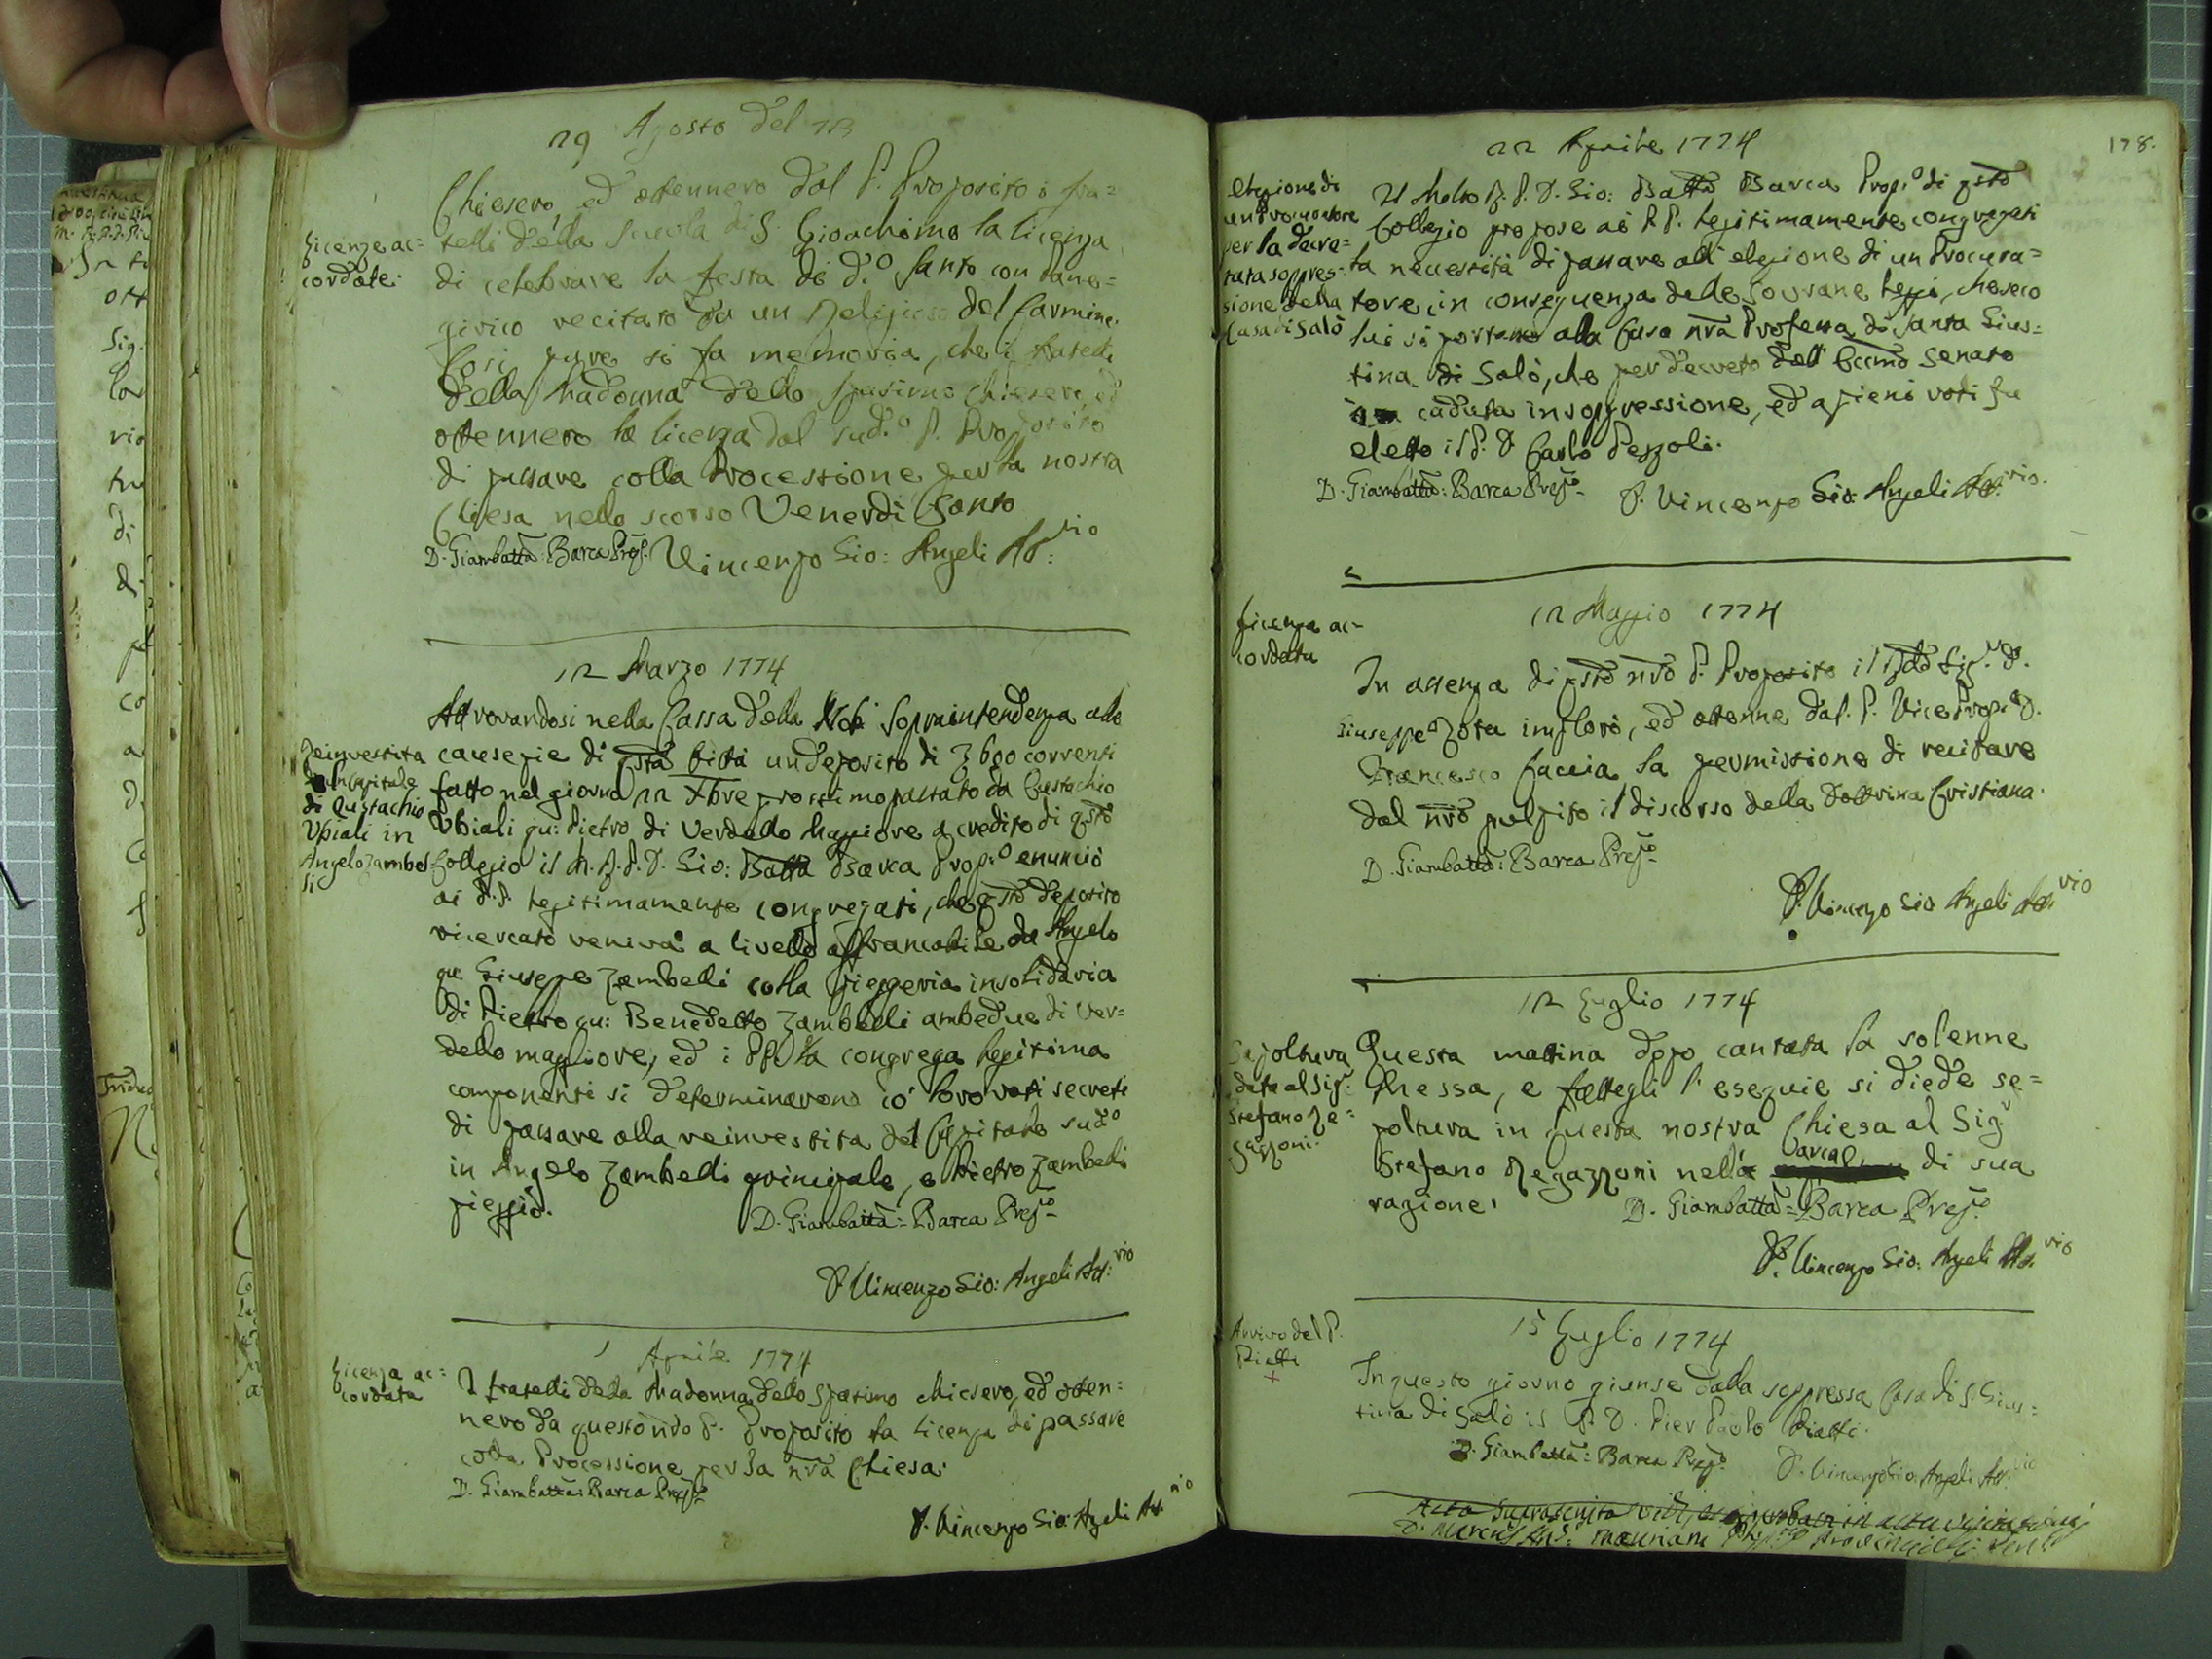 29 Agosto del 73
Licenze ac=
cordate.
Chiesero, ed ottennero dal P. Proposito i fra=
telli della Scuola di S. Gioachimo la licenza
di celebrare la festa di d.o Santo con Pane=
girico recitato da un Religioso del Carmine.
Così pure si fa memoria, che i fratelli
della Madonna dello Spasimo chiesero, ed
ottennero la licenza dal sud.o P. Proposito
di passare colla Processione per la nostra
Chiesa nello scorso Venerdì Santo
D. Giambatta: Barca Prep.o Vincenzo Gio: Angeli Att:rio
12 Marzo 1774
Reinvestita
d'un capitale
di Eustachio
Ubiali in
Angelo Zambel
li
Attrovandosi nella Cassa della Nob: Sopraintendenza alle
cause pie di qsta Città un deposito di 3600 correnti
fatto nel giorno 22 Xbre prossimo passato da Eustachio
Ubiali qu: Pietro di Verdello Maggiore a credito di qsto
Collegio il M. R. P. D. Gio: Batta Barca Prop.o enunciò
ai P.P. legitimamente congregati, che qsto deposito
ricercato veniva a livello affrancabile da Angelo
qu. Giuseppe Zambelli colla pieggeria insolidaria
di Pietro qu: Benedetto Zambelli ambedue di Ver=
dello maggiore, ed i PP. la congrega legitima
componenti si determinarono co' loro voti secreti
di passare alla reinvestita del Capitale sud.o
in Angelo Zambelli principale, e Pietro Zambelli
pieggio.
D. Giambatta: Barca Prep.o
P. Vincenzo Gio: Angeli Att:rio
1 Aprile 1774
Licenza ac=
cordata
I fratelli della Madonna dello Spasimo chiesero, ed otten=
nero da questo nro P. Proposito la licenza di passare
colla Processione per la nra Chiesa.
D. Giambatta: Barca Prep.o
P. Vincenzo Gio: Angeli Att.rio
178.
22 Aprile 1774
Elezione di
un Procuratore
per la decre=
tata soppres=
sione della
Casa di Salò
Il Molto R. P. D. Gio: Batta Barca Prop.o di qsto
Collegio propose ai P P. legitimamente congregati
la necessità di passare all' elezione di un Procura=
tore, in conseguenza delle Sovrane leggi, che seco
lui si portasse alla Casa nra Professa di Santa Gius=
tina di Salò, che per decreto dell' Eccmo Senato
caduta in soppressione, ed a pieni voti fu
eletto il P. D Carlo Pezzoli.
D. Giambatta: Barca Prep.o P. Vincenzo Gio: Angeli Att.rio
12 Maggio 1774
Licenza ac=
cordata
In assenza di qsto nro P. Proposito il Sig.r D.
Giuseppe Zota implorò, ed ottenne dal P. Vice Prop.o D.
Francesco Caccia la permissione di recitare
dal nro pulpito il discorso della Dottrina Cristiana.
D. Giambatta: Barca Prep.o
P. Vincenzo Gio: Angeli Att.rio
12 Luglio 1774
Sepoltura
data al Sig.r
Stefano Re=
gazzoni.
Questa mattina dopo cantata la solenne
Messa, e fattegli l'esequie si diede se=
poltura in questa nostra Chiesa al Sig.r
Stefano Regazzoni nell' arca di sua
ragione.
D. Giambatta: Barca Prep.o
P. Vincenzo Gio: Angeli Att.rio
15 Luglio 1774
Arrivo del P.
Piatti
+
In questo giorno giunse dalla soppressa Casa di S. Gius=
tina di Salò il P. D. Pier Paolo Piatti.
D. Giambatta: Barca Prep.o P. Vincenzo Gio: Angeli Att.rio
Acta suprascripta vidi, in actu visitationis